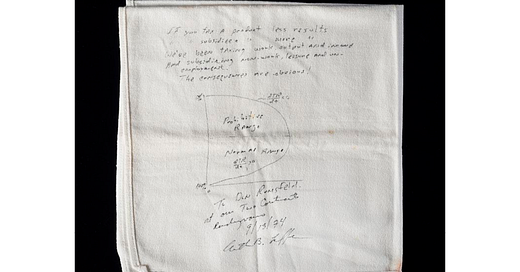 If you tax a product less results
If you subsidize a product more results
We've been taxing work, output and income
and subsidizing non-work, leisure and un-
employment.
The consequences are obvious!
Prohibitive
Range
Normal Range
To Don Rumsfeld
at our Two Continents
Rendezvous
9/13/74
Arthur B. Laffer